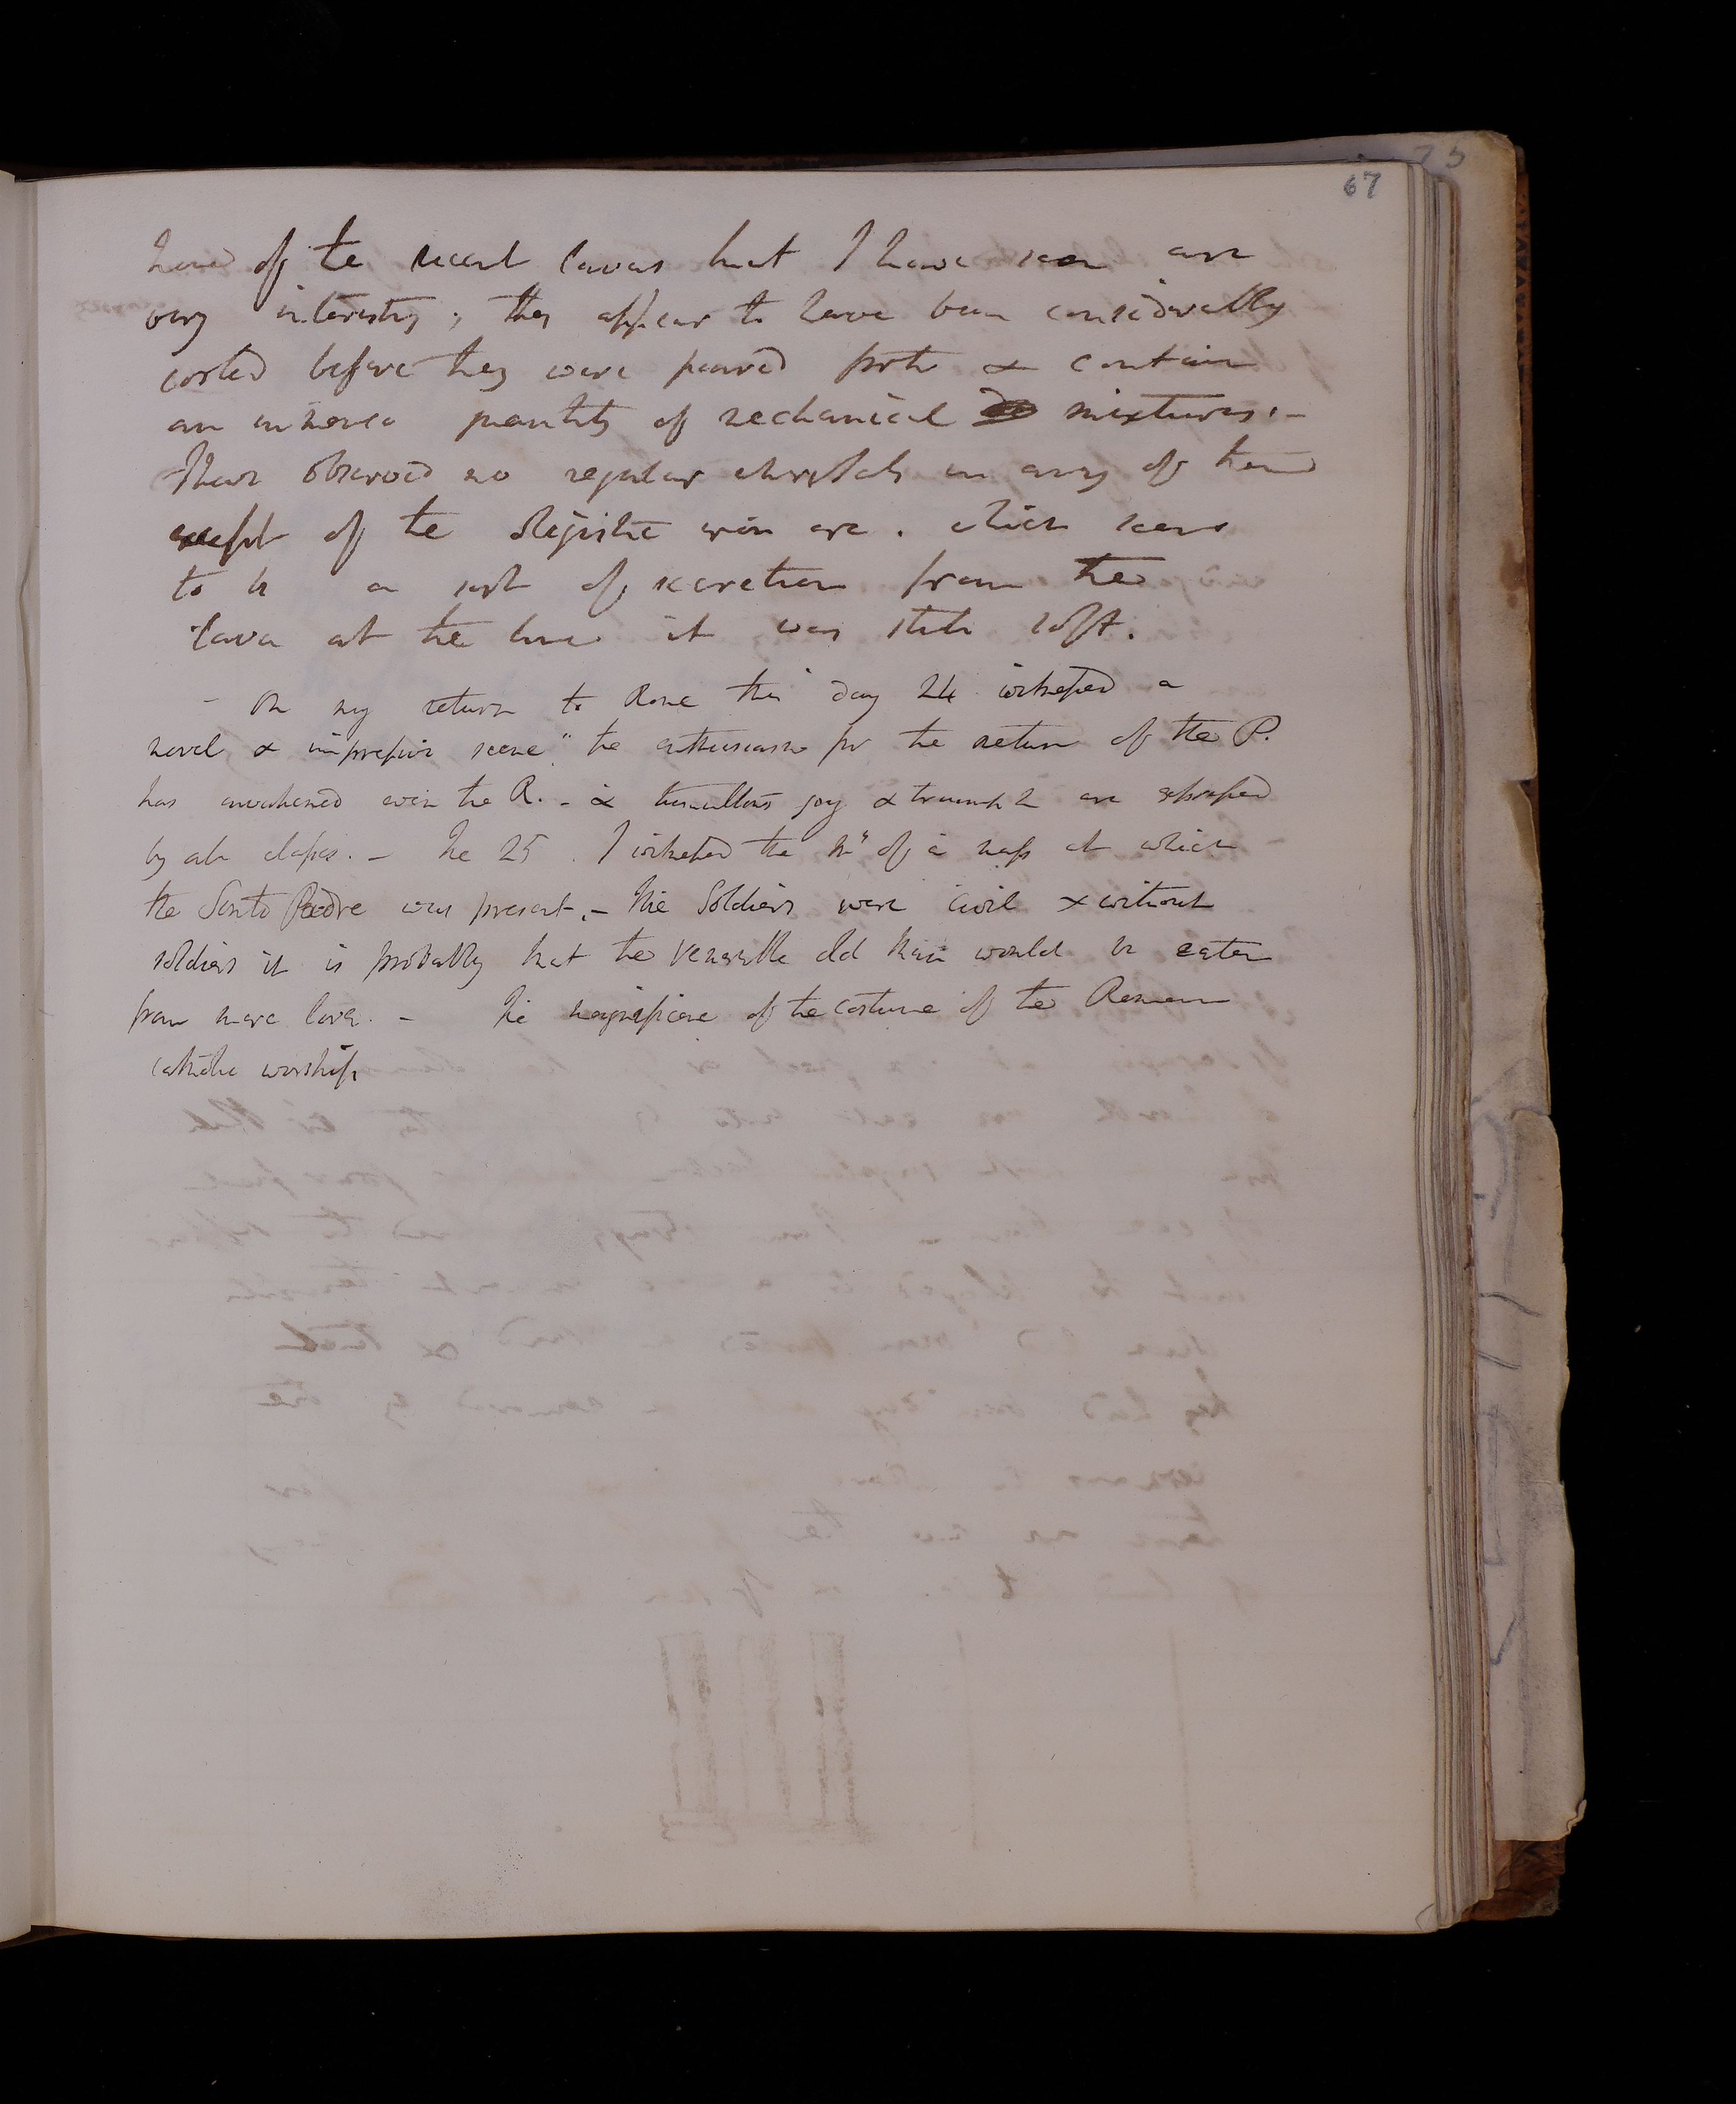 67
None of the recent lavas that I have seen are
very interesting; they appear to have been considerably
cooled before they were poured forth & contain
an immense quantity of mechanical mixtures. -
I have observed no regular chrystals in any of them
except of the oligiste iron ore. which seems
to be a sort of secretion from the
lava at the time it was still soft.
- On my return to Rome this day 24 witnessed a
novel & impressive scene the enthusiasm for the return of the P.
has awakened even the R. - & tumultous joy & triumph are expressed
by all classes. - The 25. I witnessed the of a mass at which
the Santo Padre was present. - The Soldiers were civil & without
soldiers it is probably that the venerable old man would be eaten
from mere love. - The magnificence of the costume of the Roman
catholic worship